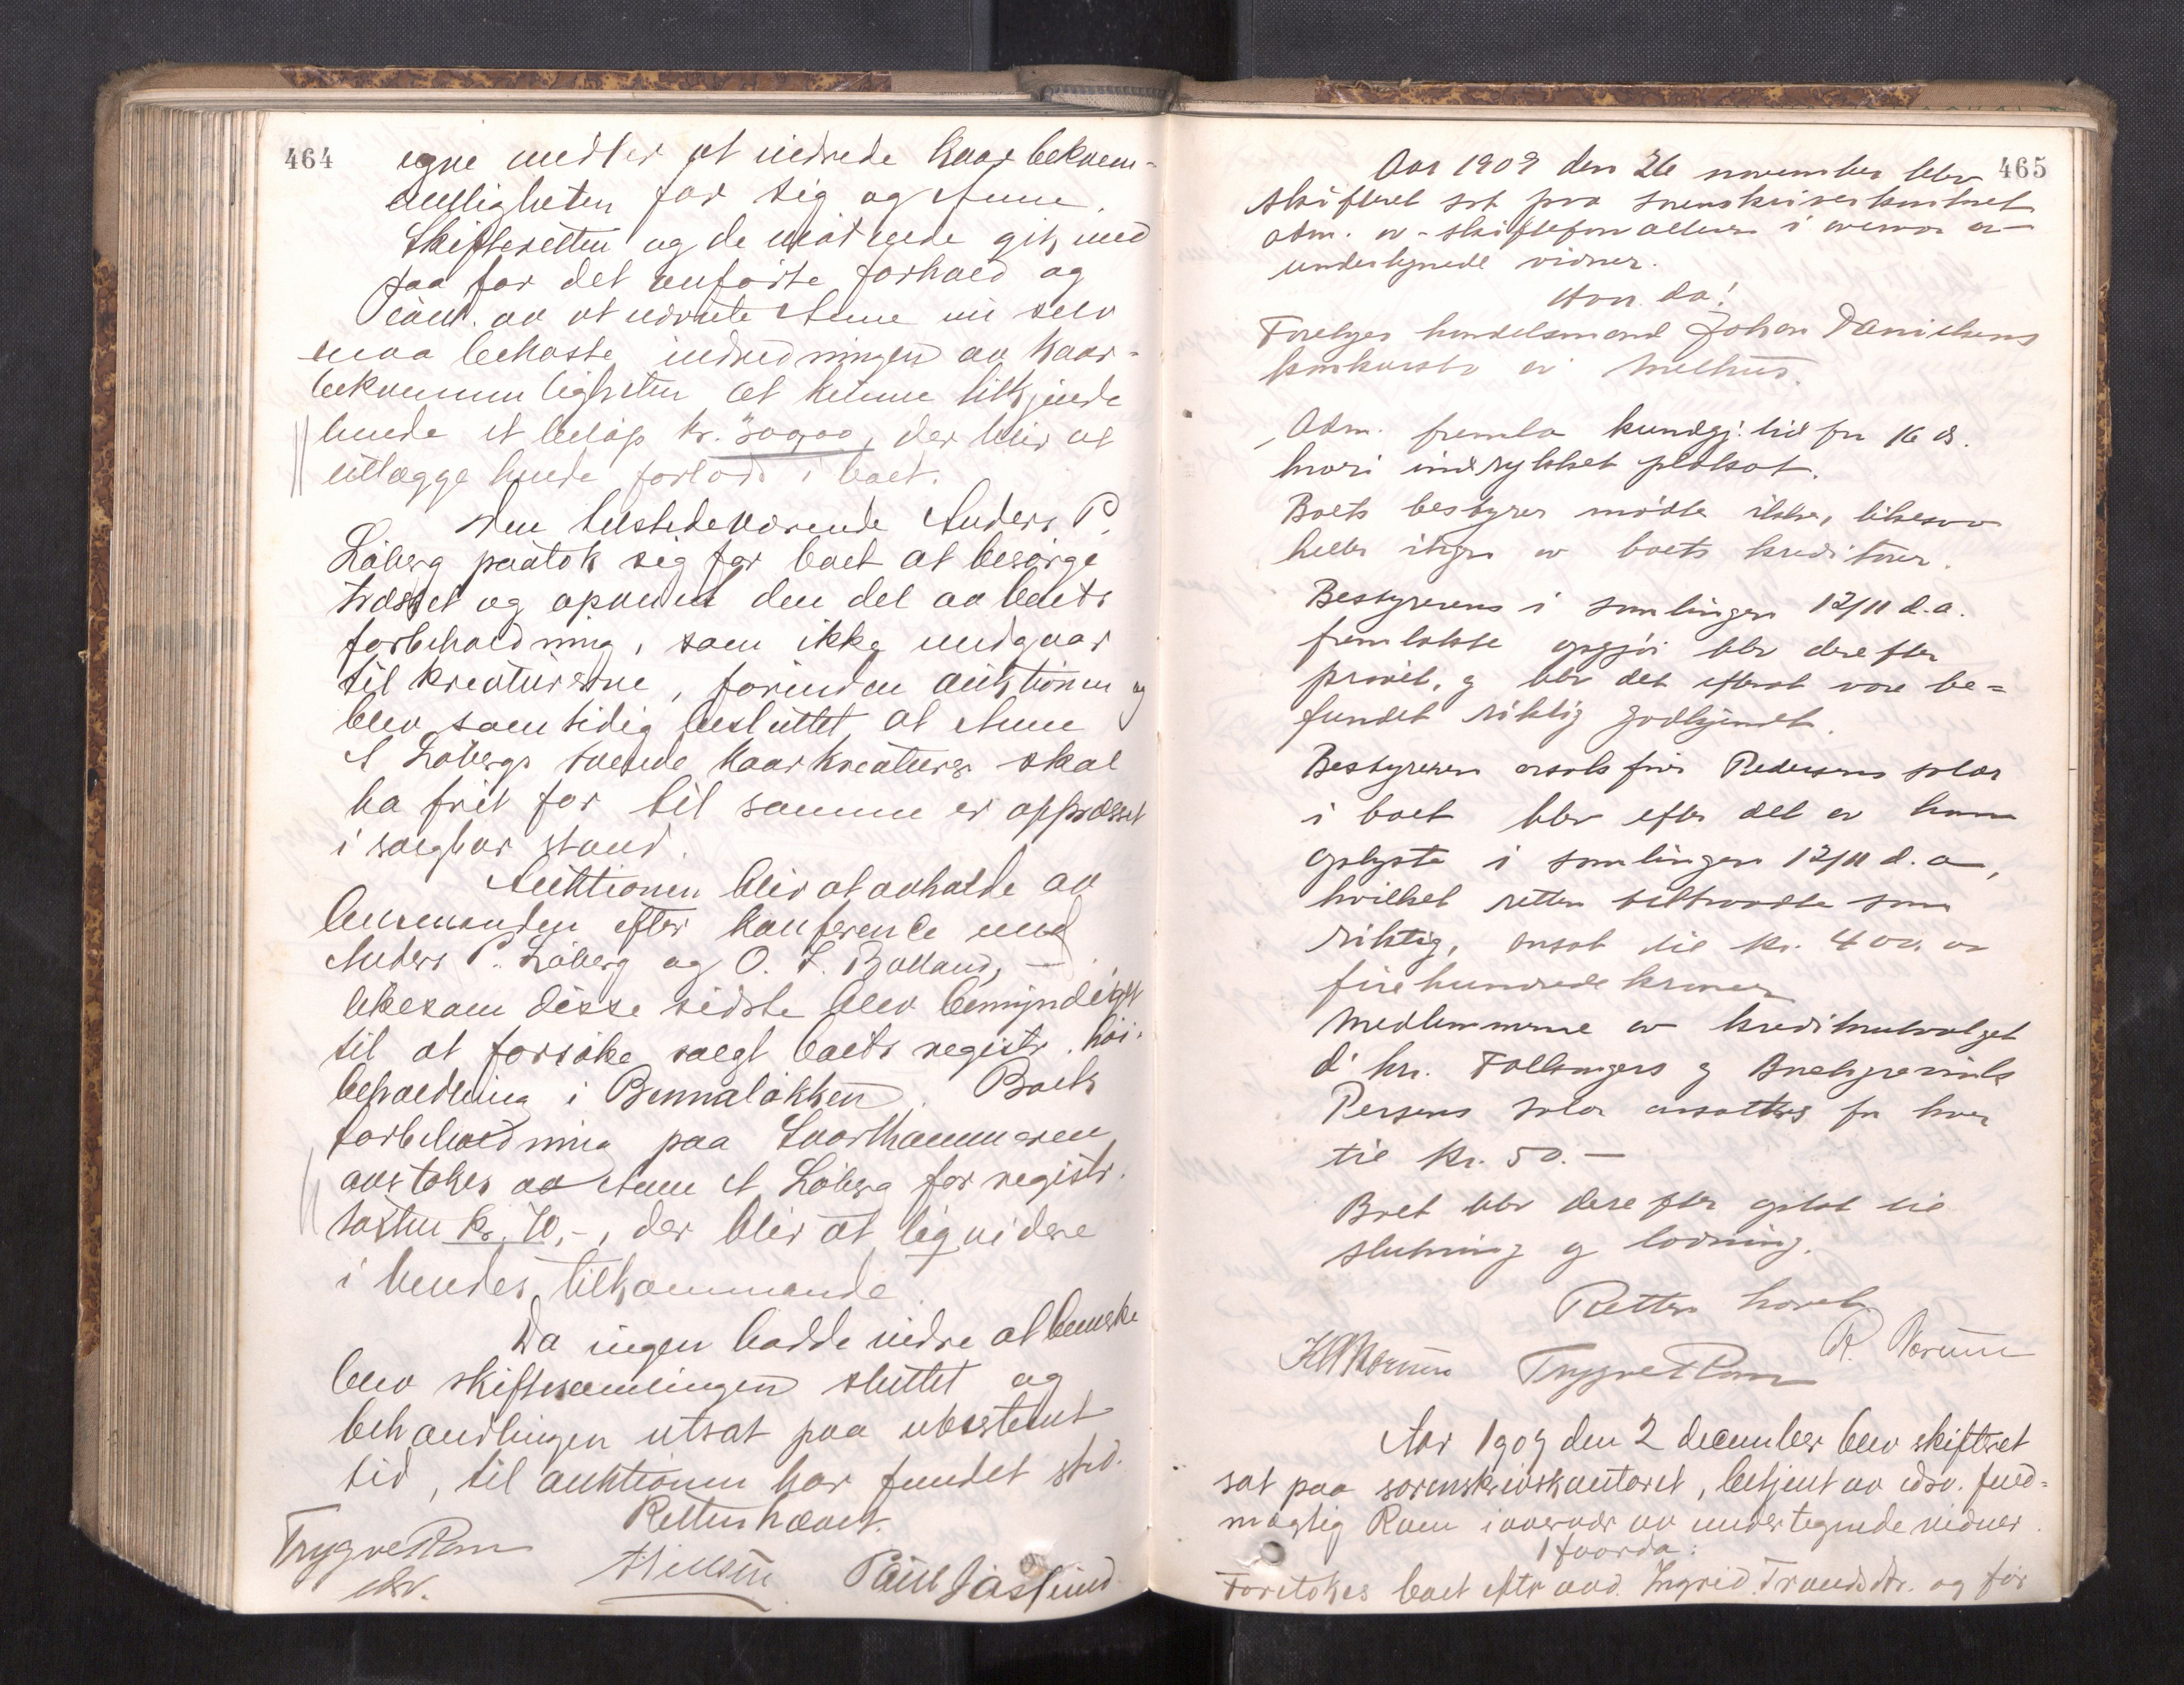 464
egne midler at indrede kaarbekvem-
meligheten for sig og Anne.
Skifteretten og de mødende gik med
paa for det anførte forhold og
av at Anne nu selv
maa bekoste indredningen av kaar-
bekvemmeligheten at kunne tilkjende
hende et beløp kr. 300,00, der blir at
utlægge hende forlods i boet.
Den tilstedeværende Anders P.
Løberg paatok sig for boet at besørge
træsket og opmaalt den del av boets
forbeholdning, som ikke medgaar
til kreaturerne, forinden auktionen og
blev samtidig besluttet at Anne
A Løbergs kaarkreaturer skal
ha frit for til samme er optræsket
i salgbar stand.
Auktionen blir at avholde av
lensmanden efter konference med
Anders P. Løberg og O. L. Bolland, —
likesom disse sidste blev bemyndiget
til at forsøke solgt boets registr. høi-
beholdning i Bennaløkken. Boets
forbeholdning paa Svorthammeren
overtokes av Anne A Løberg for registr.
taxten kr. 70,-, der blir at liqvidere
i hendes tilkommende.
Da ingen hadde videre at bemerke
blev skiftesamlingen sluttet og
behandlingen utsat paa ubestemt
tid, til auktionen har fundet sted.
Retten hævet.
Trygve Ram
edsv.
465
Aar 1909 den 26 november blev
skifteret sat paa sorenskriverkontoret
adm. av skifteforvalteren i overvær av
undertegnede vidner.
Hvor da!
Foretages handelsmand Johan Danielsens
konkursbo av Melhus.
Adm. fremla kundgj. tid fra 16 ds.
hvori indrykket plakat.
Boets bestyrer mødte ikke, likesaa
heller ingen av boets kreditorer.
Bestyrerens i samlingen 12/11 d.a.
fremlakte opgjør blev derefter
prøvet, og blev det efterat være be=
fundet riktig godkjendt.
Bestyreren Pedersens salær
i boet blev efter det av ham
oplyste i samlingen 12/11 d.a,
hvilket retten tiltraadte som
riktig, ansat til kr. 400
firehundrede kroner
Medlemmerne av kreditorutvalget
d'hrr. og
Persens salær ansattes for hver
til kr. 50.—
Boet blev derefter optat til
slutning og lodning.
Retten hævet
Trygve Ram
Aar 1909 den 2 december blev skifteret
sat paa sorenskriverkontoret, betjent av edsv. fuld-
mægtig Ram i overvær av undertegnede vidner.
Hvorda:
Foretokes boet efter avd. Ingrid Trondsdtr. og for